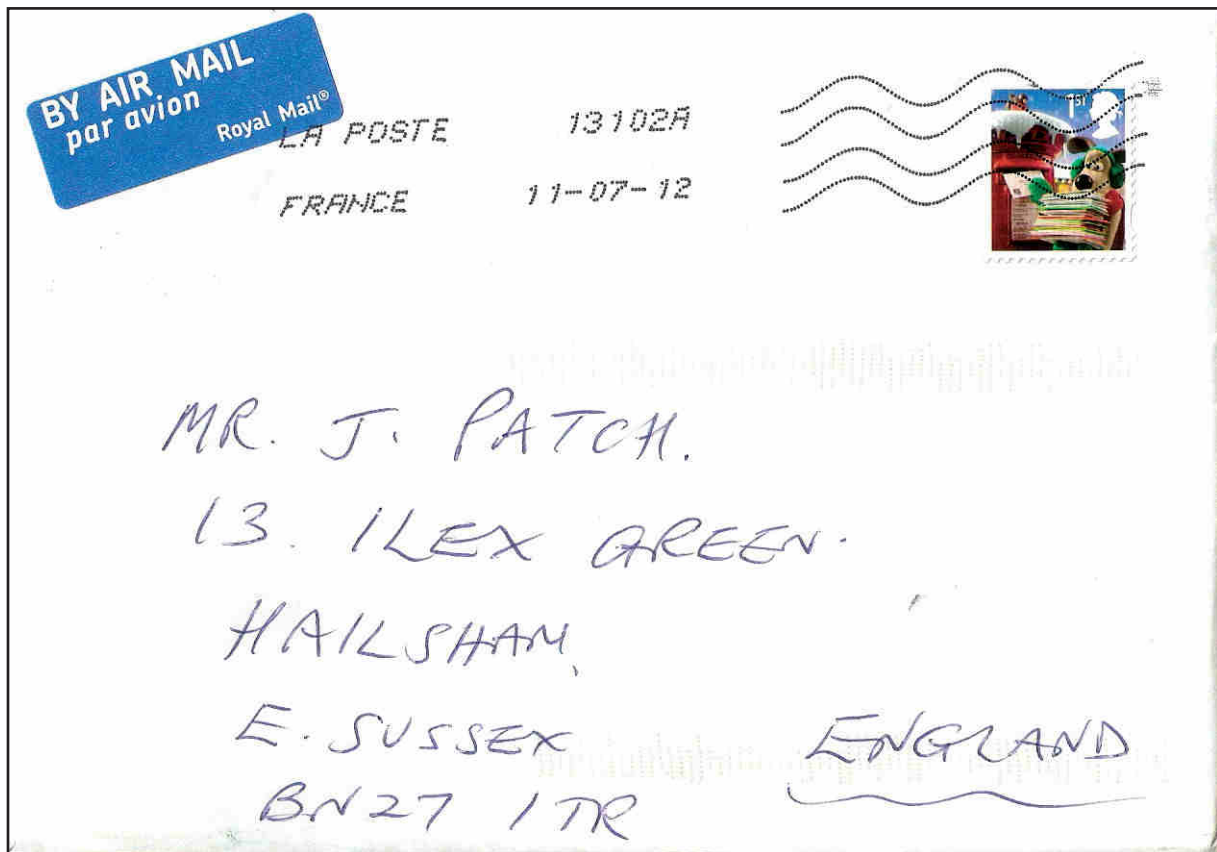 BY AIR MAIL
par avion
Royal Mail®
LA POSTE 13102A
FRANCE 11-07-12
1ST
MR. J. PATCH.
13. ILEX GREEN.
HAILSHAM,
E. SUSSEX
BN27 1TR
ENGLAND